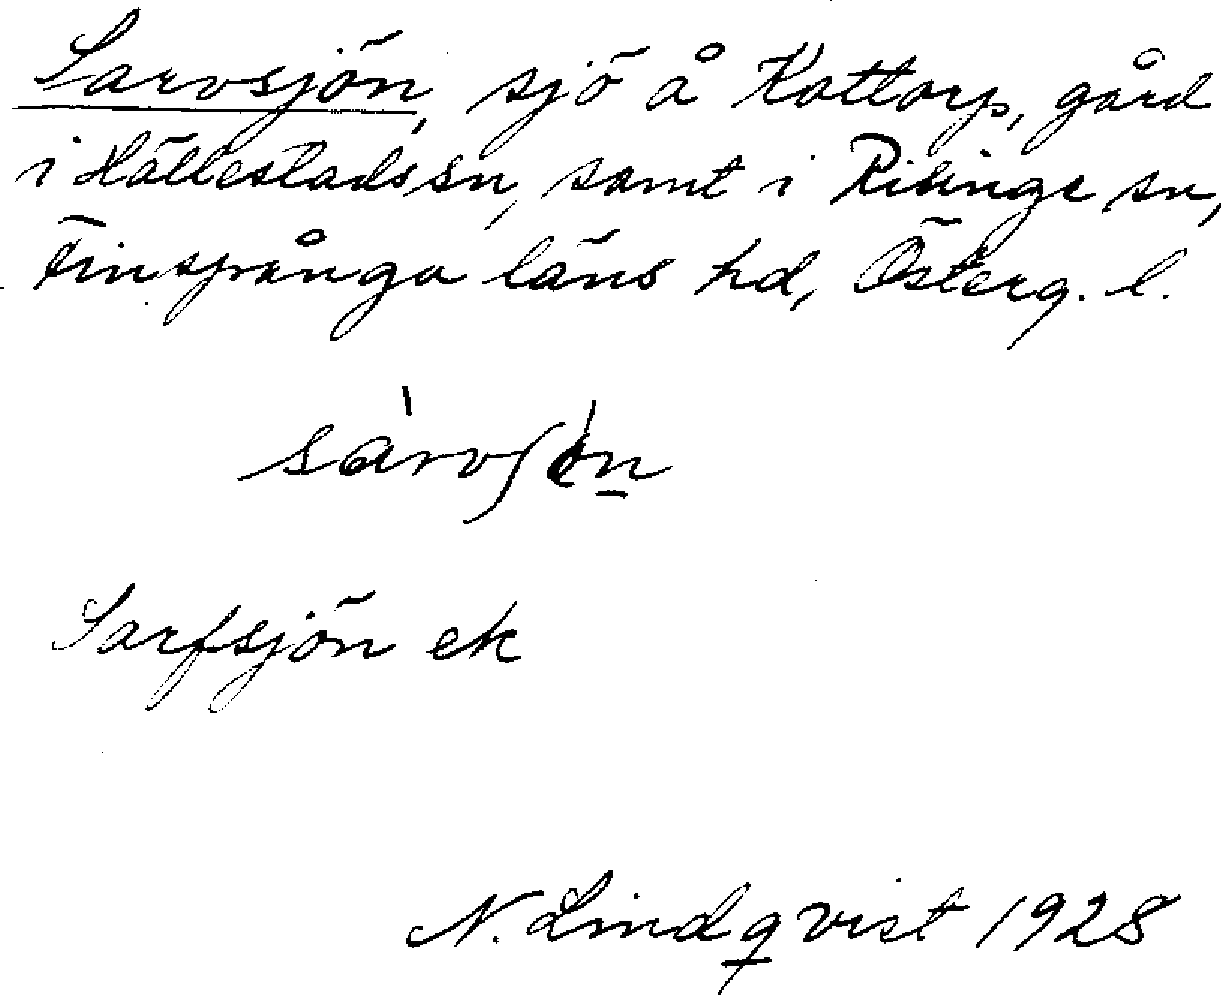 Sarvsjön, sjö å Kattorp, gård
i Hällestads sn, samt i Risinge sn,
Finspånga läns hd, Österg. l.
sàrvʃön
Sarfsjön ek
N. Lindqvist 1928